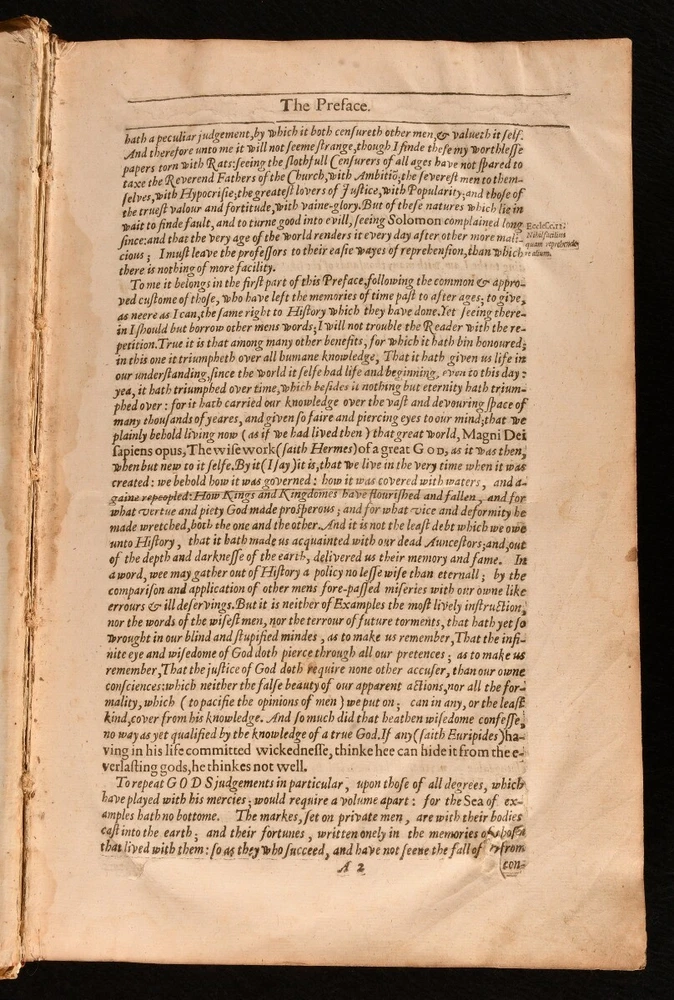 The Preface.
hath a peculiar judgement, by which it both censureth other men, & valueth it self.
And therefore unto me it will not seeme strange, though I finde these my worthlesse
papers torn with Rats: seeing the slothfull Censurers of all ages have not spared to
taxe the Reverend Fathers of the Church, with Ambitiō; the severest men to them-
selves, with Hypocrisie; the greatest lovers of Justice, with Popularity; and those of
the truest valour and fortitude, with vaine-glory. But of these natures which lie in
wait to finde fault, and to turne good into evill, seeing Solomon complained long
since: and that the very age of the world renders it every day after other more mali-
cious; I must leave the professors to their easie wayes of reprehension, than which
there is nothing of more facility.
Nihil facilius
quam reprehende-
To me it belongs in the first part of this Preface, following the common & appro-
ved custome of those, who have left the memories of time past to after ages; to give,
as neere as I can, the same right to History which they have done. Yet seeing there-
in I should but borrow other mens words; I will not trouble the Reader with the re-
petition. True it is that among many other benefits, for which it hath bin honoured;
in this one it triumpheth over all humane knowledge, That it hath given us life in
our understanding, since the world it selfe had life and beginning, even to this day:
yea, it hath triumphed over time, which besides it nothing but eternity hath trium-
phed over: for it hath carried our knowledge over the vast and devouring space of
many thousands of yeares, and given so faire and piercing eyes to our mind; that we
plainly behold living now (as if we had lived then) that great world, Magni Dei
sapiens opus, The wise work (saith Hermes) of a great GOD, as it was then,
when but new to it selfe. By it (I say) it is, that we live in the very time when it was
created: we behold how it was governed: how it was covered with waters, and a-
gaine repeopled: How Kings and Kingdomes have flourished and fallen, and for
what vertue and piety God made prosperous; and for what vice and deformity he
made wretched, both the one and the other. And it is not the least debt which we owe
unto History, that it hath made us acquainted with our dead Auncestors; and, out
of the depth and darknesse of the earth, delivered us their memory and fame. In
a word, wee may gather out of History a policy no lesse wise than eternall; by the
comparison and application of other mens fore-passed miseries with our owne like
errours & ill deservings. But it is neither of Examples the most lively instruction,
nor the words of the wisest men, nor the terrour of future torments, that hath yet so
wrought in our blind and stupified mindes, as to make us remember, That the infi-
nite eye and wisedome of God doth pierce through all our pretences; as to make us
remember, That the justice of God doth require none other accuser, than our owne
consciences: which neither the false beauty of our apparent actions, nor all the for-
mality, which (to pacifie the opinions of men) we put on; can in any, or the least
kind, cover from his knowledge. And so much did that heathen wisedome confesse,
no way as yet qualified by the knowledge of a true God. If any (saith Euripides) ha-
ving in his life committed wickednesse, thinke hee can hide it from the e-
verlasting gods, he thinkes not well.
To repeat GODS judgements in particular, upon those of all degrees, which
have played with his mercies; would require a volume apart: for the Sea of ex-
amples hath no bottome. The markes, set on private men, are with their bodies
cast into the earth; and their fortunes, written onely in the memories of those
that lived with them: so as they who succeed, and have not seene the fall of
A 2
con-